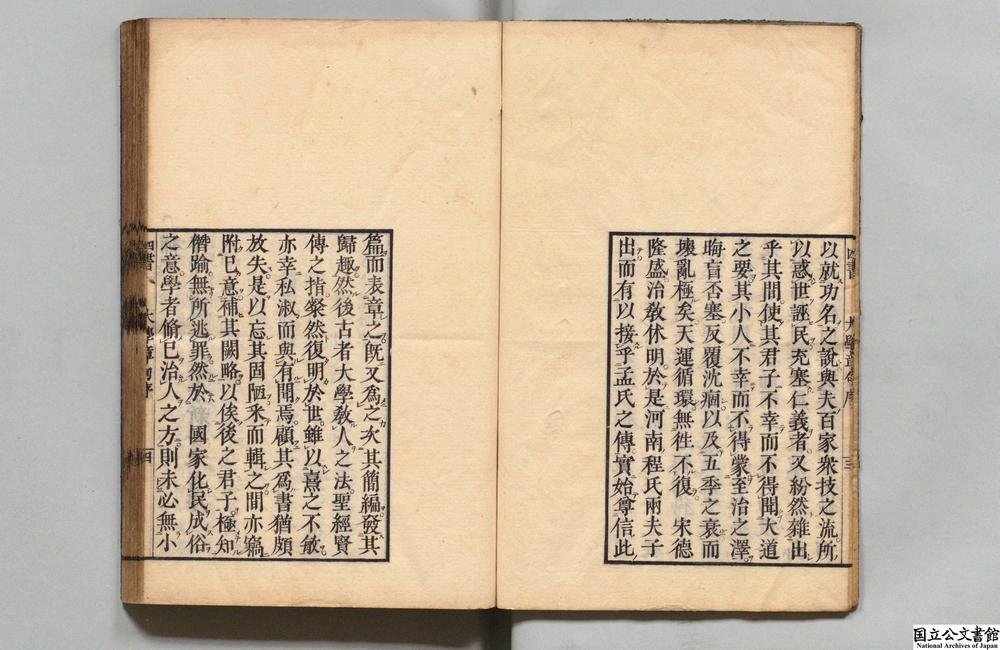 以就功名之說與夫百家衆技之流所
以惑世誣民充塞仁義者又紛然雜出
乎其間使其君子不幸而不得聞大道
之要其小人不幸而不得蒙至治之澤
晦盲否塞反覆沈痼以及五季之衰而
壞亂極矣天運循環無徃不復 宋德
隆盛治敎休明於是河南程氏兩夫子
出而有以接乎孟氏之傳實始尊信此
篇而表章之旣又爲之次其簡編發其
歸趣然後古者大學敎人之法聖經賢
傳之指粲然復明於世雖以熹之不敏
亦幸私淑而與有聞焉顧其爲書猶頗
放失是以忘其固陋釆而輯之間亦竊
附已意補其闕略以俟後之君子極知
僭踰無所逃罪然於 國家化民成俗
之意學者脩已治人之方則未必無小
四書 大學章句序 四
国立公文書館
National Archives of Japan